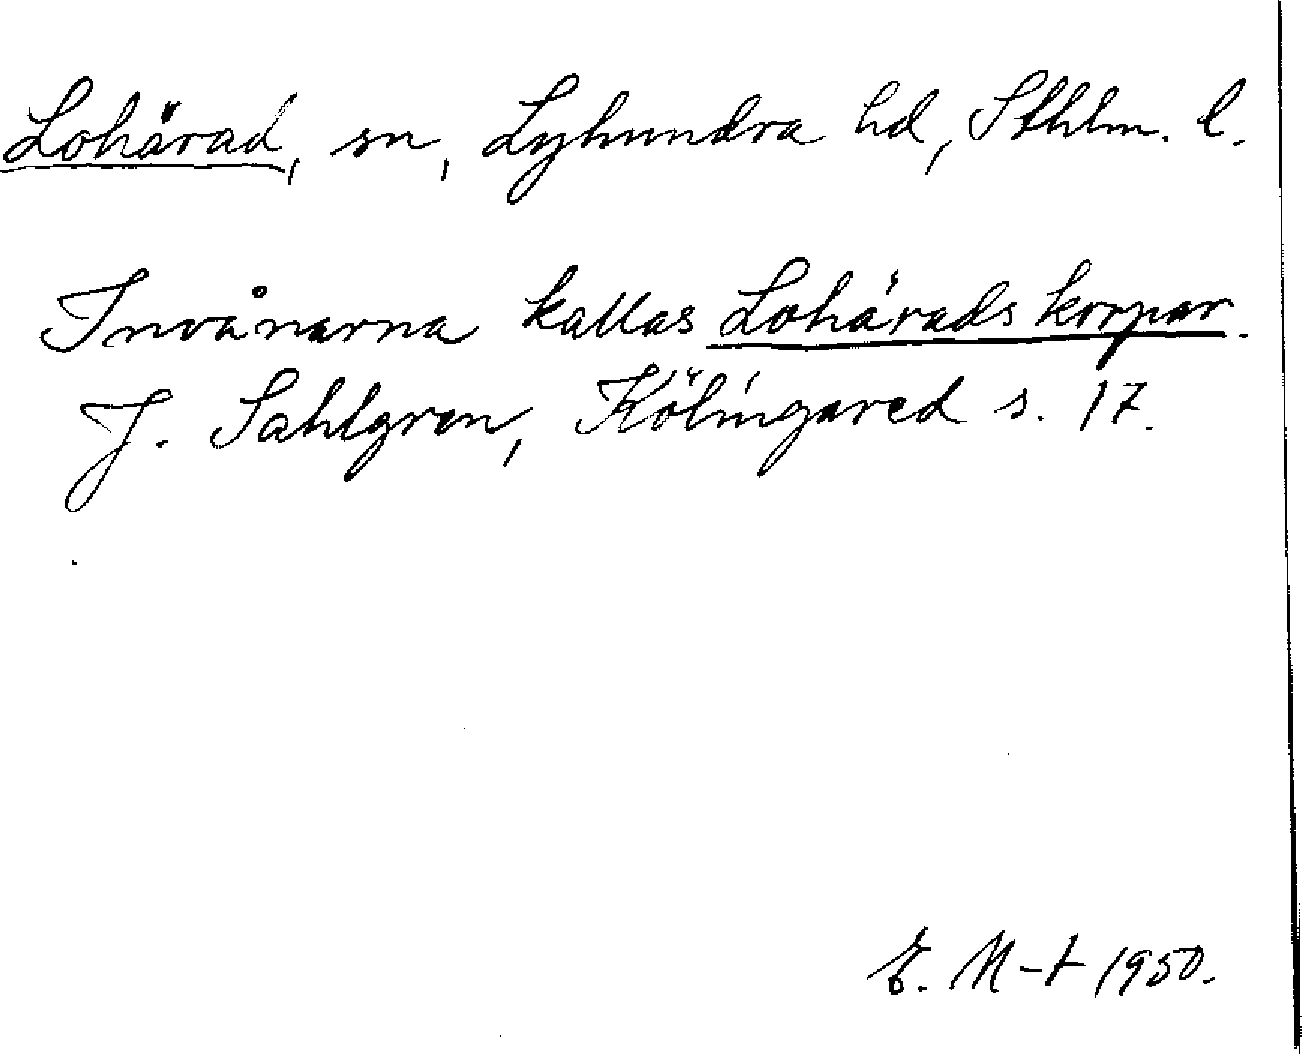 Lohärad, sn, Lyhundra hd, Sthlm. l.
Invånarna kallas Lohärads korpar.
J. Sahlgren, Kölingared s. 17.
E. M-t 1950.